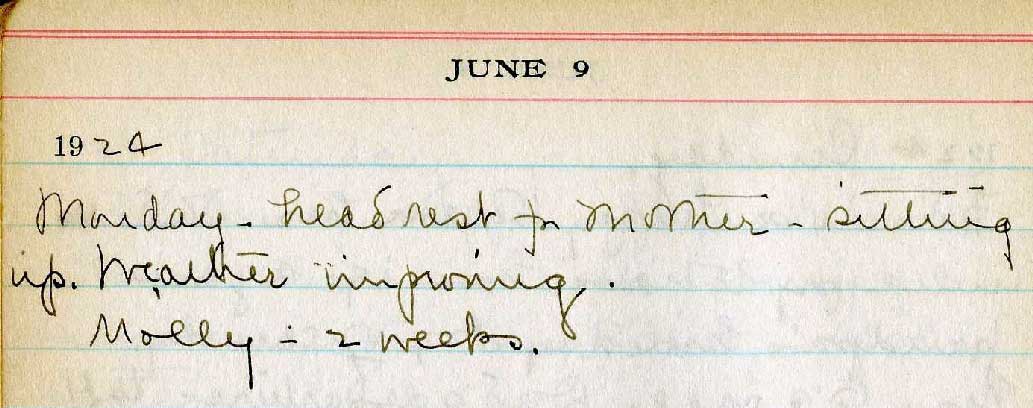 JUNE 9
1924
Monday - head rest for Mother - sitting
up. Weather improving.
Molly - 2 weeks.